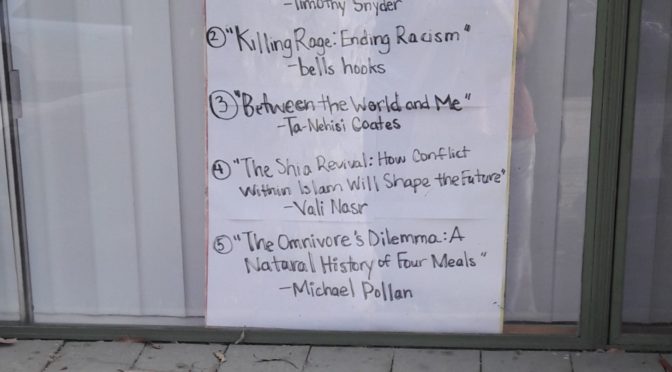 -Timothy Snyder
② "Killing Rage: Ending Racism"
-bells hooks
③ "Between the World and Me"
-Ta-Nehisi Coates
④ "The Shia Revival: How Conflict
Within Islam Will Shape the Future"
-Vali Nasr
⑤ "The Omnivore's Dilemma: A
Natural History of Four Meals"
-Michael Pollan